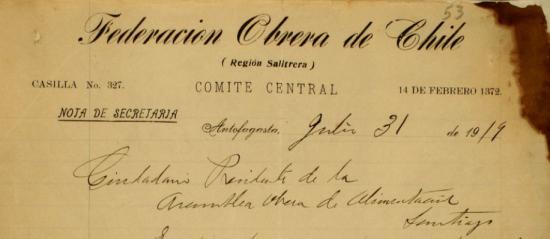 53
Federacion Obrera de Chile
( Región Salitrera )
CASILLA No. 327. COMITE CENTRAL 14 DE FEBRERO 1372.
NOTA DE SECRETARIA
Antofagasta, Julio 31 de 1919
Ciudadano Presidente de la
Asamblea Obrera de Alimentación
Santiago